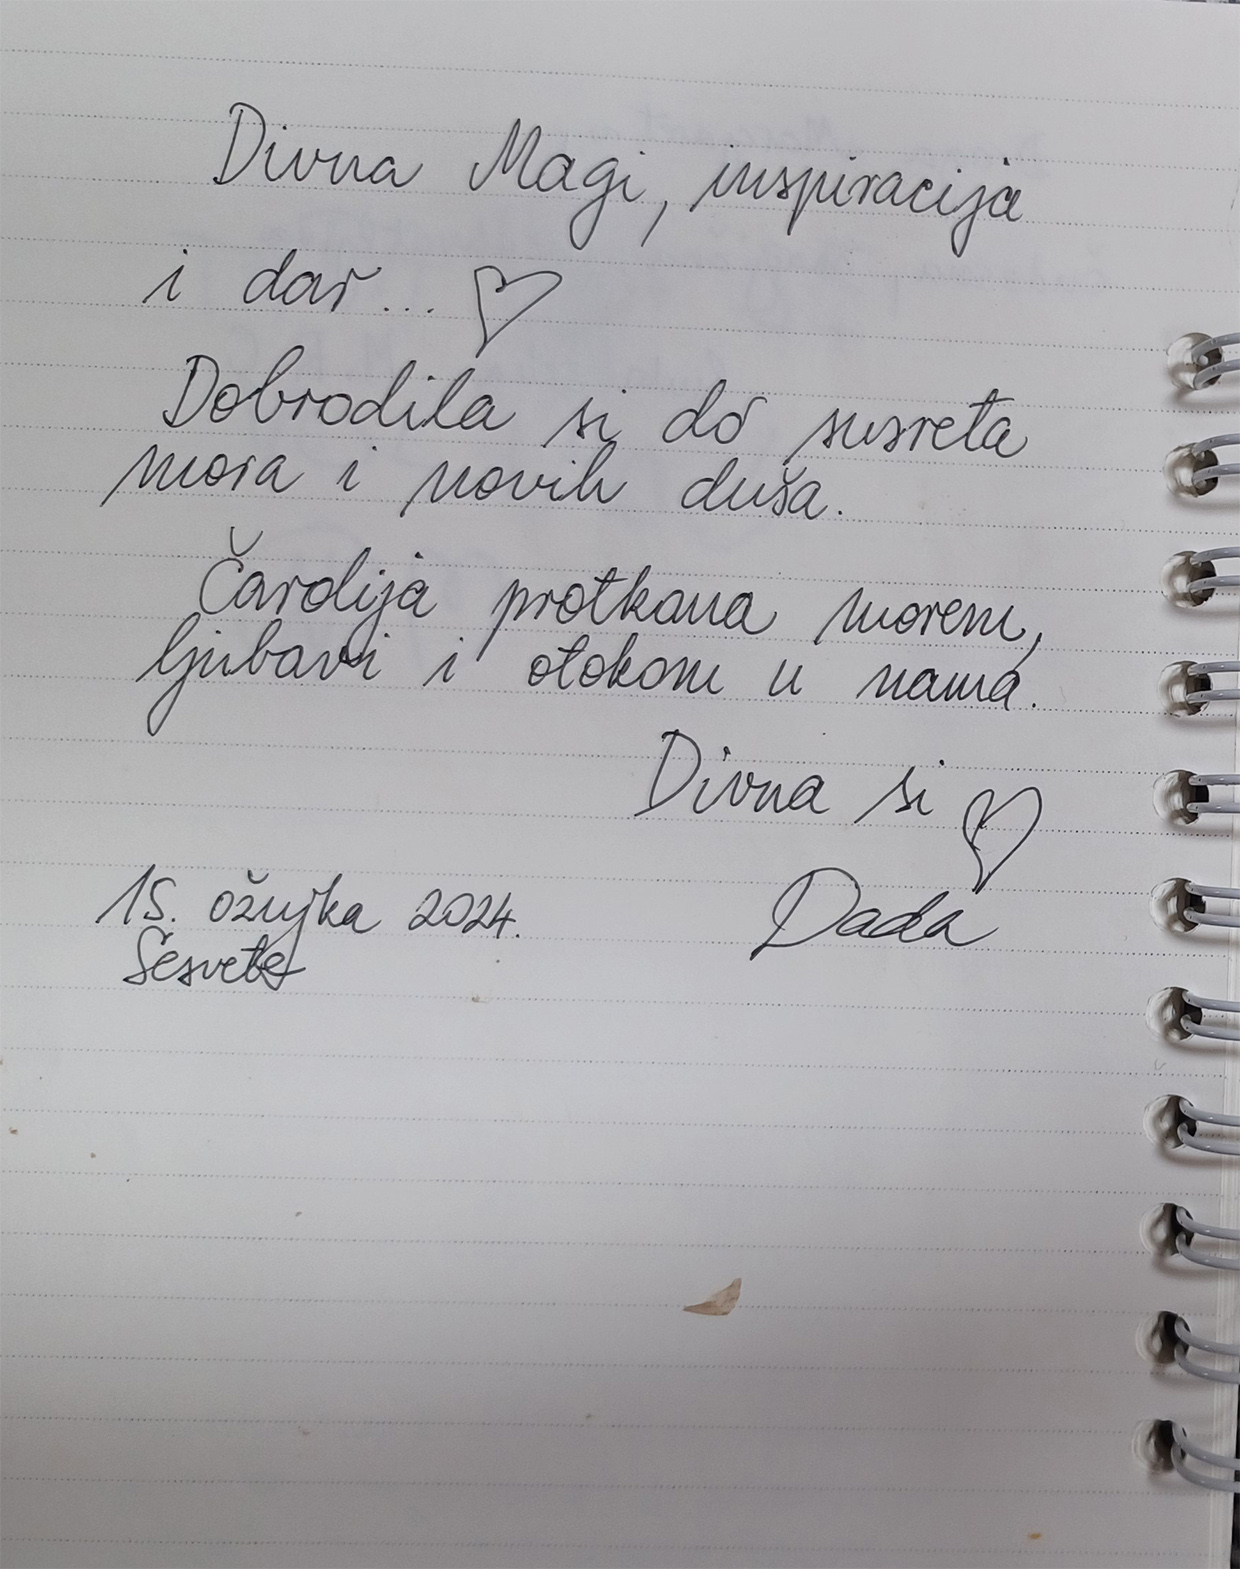 Divna Magi, inspiracija
i dar... ♡
Dobrodila si do susreta
mora i novih duša.
Čarolija protkana morem,
ljubavi i otokom u nama.
Divna si ♡
15. ožujka 2024.
Dada
Sesvete